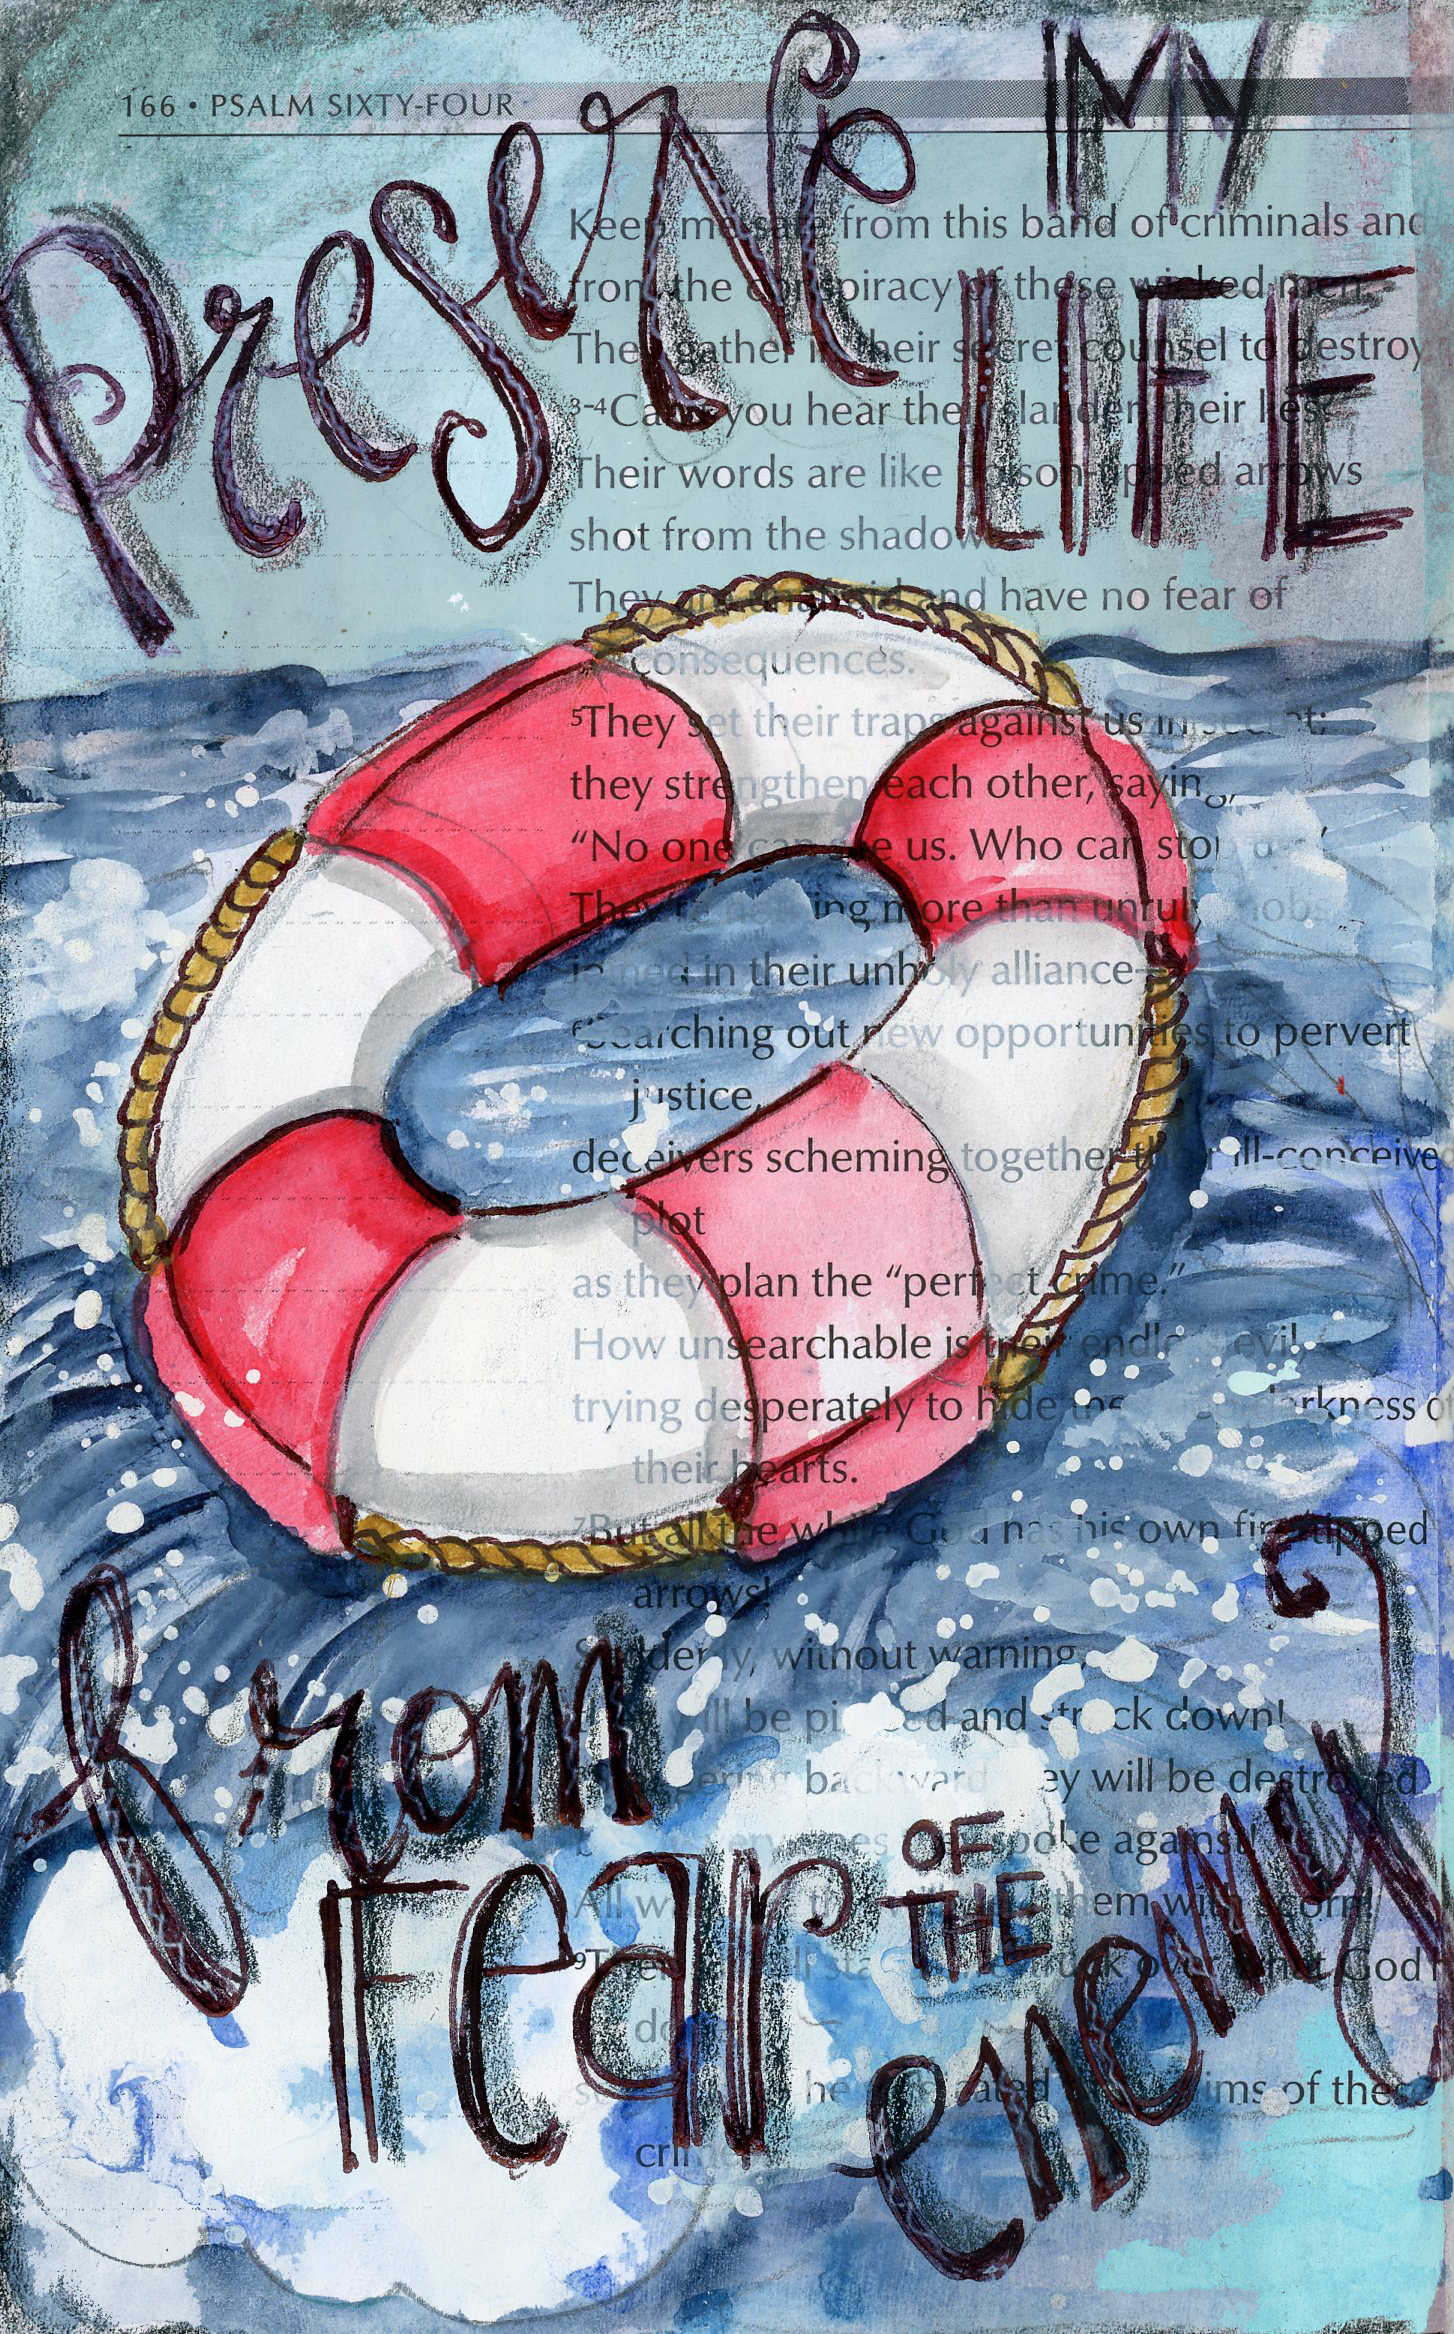 166 • PSALM SIXTY-FOUR
Preserve MY
LIFE
Keep me safe from this band of criminals and
from the conspiracy of these wicked men.
They gather in their secret counsel to destroy
3-4Can't you hear their slander, their lies?
Their words are like poison-tipped arrows
shot from the shadows.
They are unafraid and have no fear of
consequences.
5They set their traps against us in secret;
they strengthen each other, saying,
“No one can see us. Who can stop us?”
They're nothing more than unruly mobs
joined in their unholy alliance—
6Searching out new opportunities to pervert
justice,
deceivers scheming together their ill-conceived
plot
as they plan the “perfect crime.”
How unsearchable is their endless evil,
trying desperately to hide the darkness of
their hearts.
7But all the while God has his own fire-tipped
arrows!
Suddenly, without warning,
will be pierced and struck down!
Staggering backward they will be destroyed
they spoke against!
All who them with scorn!
9Then all stand awestruck over what God
done,
he vindicated victims of these
crimes.
from
Fear OF
THE
enemy